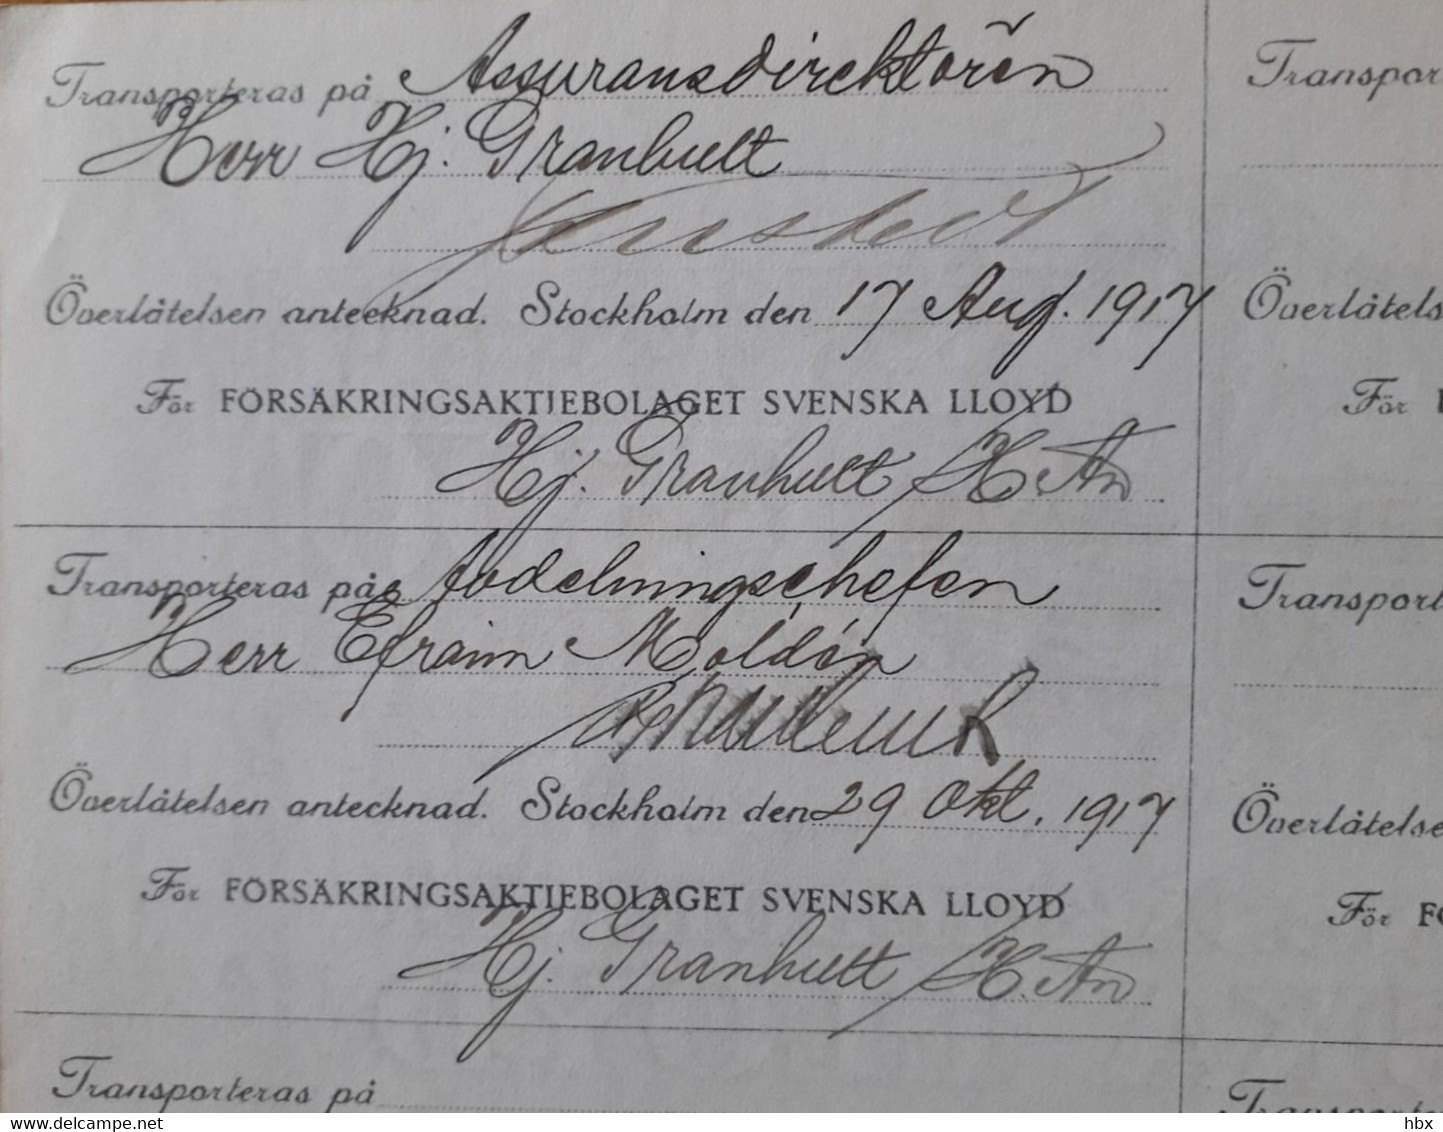 Transporteras på Assuransdirektören
Herr Hj. Granhult
Överlåtelsen antecknad. Stockholm den 17 Aug. 1917
För FÖRSÄKRINGSAKTIEBOLAGET SVENSKA LLOYD
Hj. Granhult
Transporteras på Avdelningschefen
Herr Efraim Moldén
Överlåtelsen antecknad. Stockholm den 29 Okt. 1917
För FÖRSÄKRINGSAKTIEBOLAGET SVENSKA LLOYD
Hj. Granhult
Transporteras på
Transpor
Överlåtels
För
Transport
Överlåtelse
För
Transporter
delcampe.net
hbx